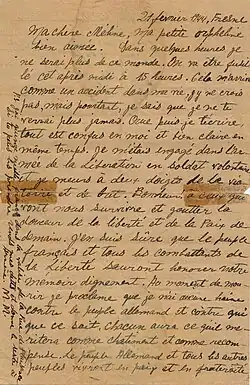 21 février 1944, Fresnes
Ma chère Méline, ma petite orpheline
bien aimée. Dans quelques heures je
ne serai plus de ce monde. On va être fusillé
cet après midi à 15 heures. Cela m'arrive
comme un accident dans ma vie, j'y ne crois
pas, mais pourtant, je sais que je ne te
verrai plus jamais. Que puis-je t'écrire,
tout est confus en moi et bien claire en
même temps. Je m'étais engagé dans l'ar-
mée de la Libération en soldat volontaire
et je meurs à deux doigts de la vic-
toire et de but. Bonheur à ceux qui
vont nous survivre et goutter la
douceur de la liberté et de la Paix de
demain. J'en suis sûre que le peuple
français et tous les combattants de
la Liberté sauront honorer notre
mémoire dignement. Au moment de mou-
rir je proclame que je n'ai aucune haine
contre le peuple allemand et contre qui
que ce soit, chacun aura ce qu'il me-
ritera comme chatiment et comme recom-
pense. Le peuple Allemand et tous les autres
peuples vivront en paix et en fraternité